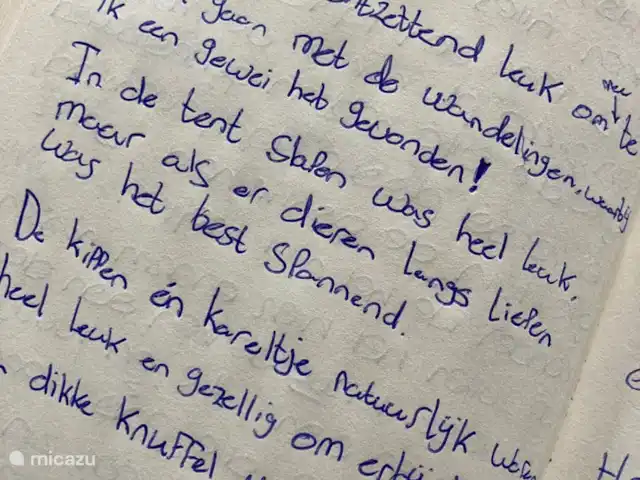 tzettend leuk om te
mee
gaan met de wandelingen, waarbij
ik een gewei heb gevonden!
In de tent slapen was heel leuk,
maar als er dieren langs liepen
was het best spannend.
De kippen én Kareltje natuurlijk
heel leuk en gezellig om erbij
dikke knuffel
micazu